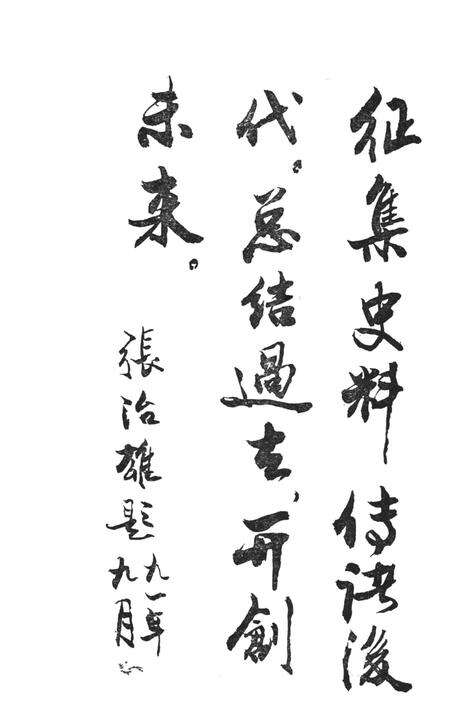 征集史料传诸後
代。总结過去，开創
未来。
張治雄题
九一年
九月